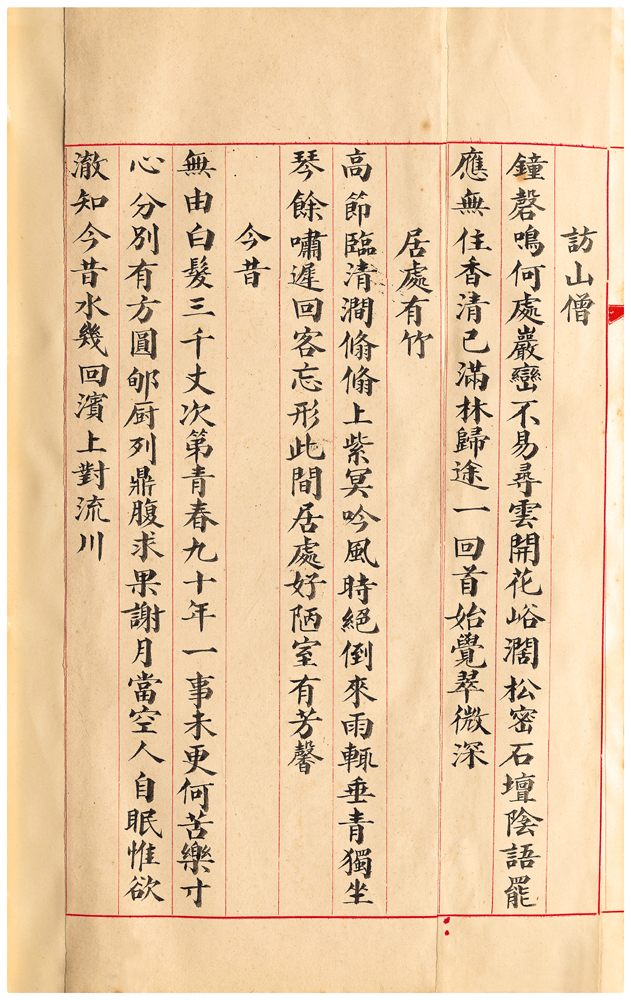 訪山僧
鐘磬鳴何處巖巒不易尋雲開花峪濶松密石壇陰語罷
應無住香清已滿林歸途一回首始覺翠微深
居處有竹
高節臨清澗翛翛上紫冥吟風時絕倒來雨輒垂青獨坐
琴餘嘯遲回客忘形此間居處好陋室有芳馨
今昔
無由白髮三千丈次第青春九十年一事未更何苦樂寸
心分別有方圓郇厨列鼎腹求果謝月當空人自眠惟欲
澈知今昔水幾回濱上對流川